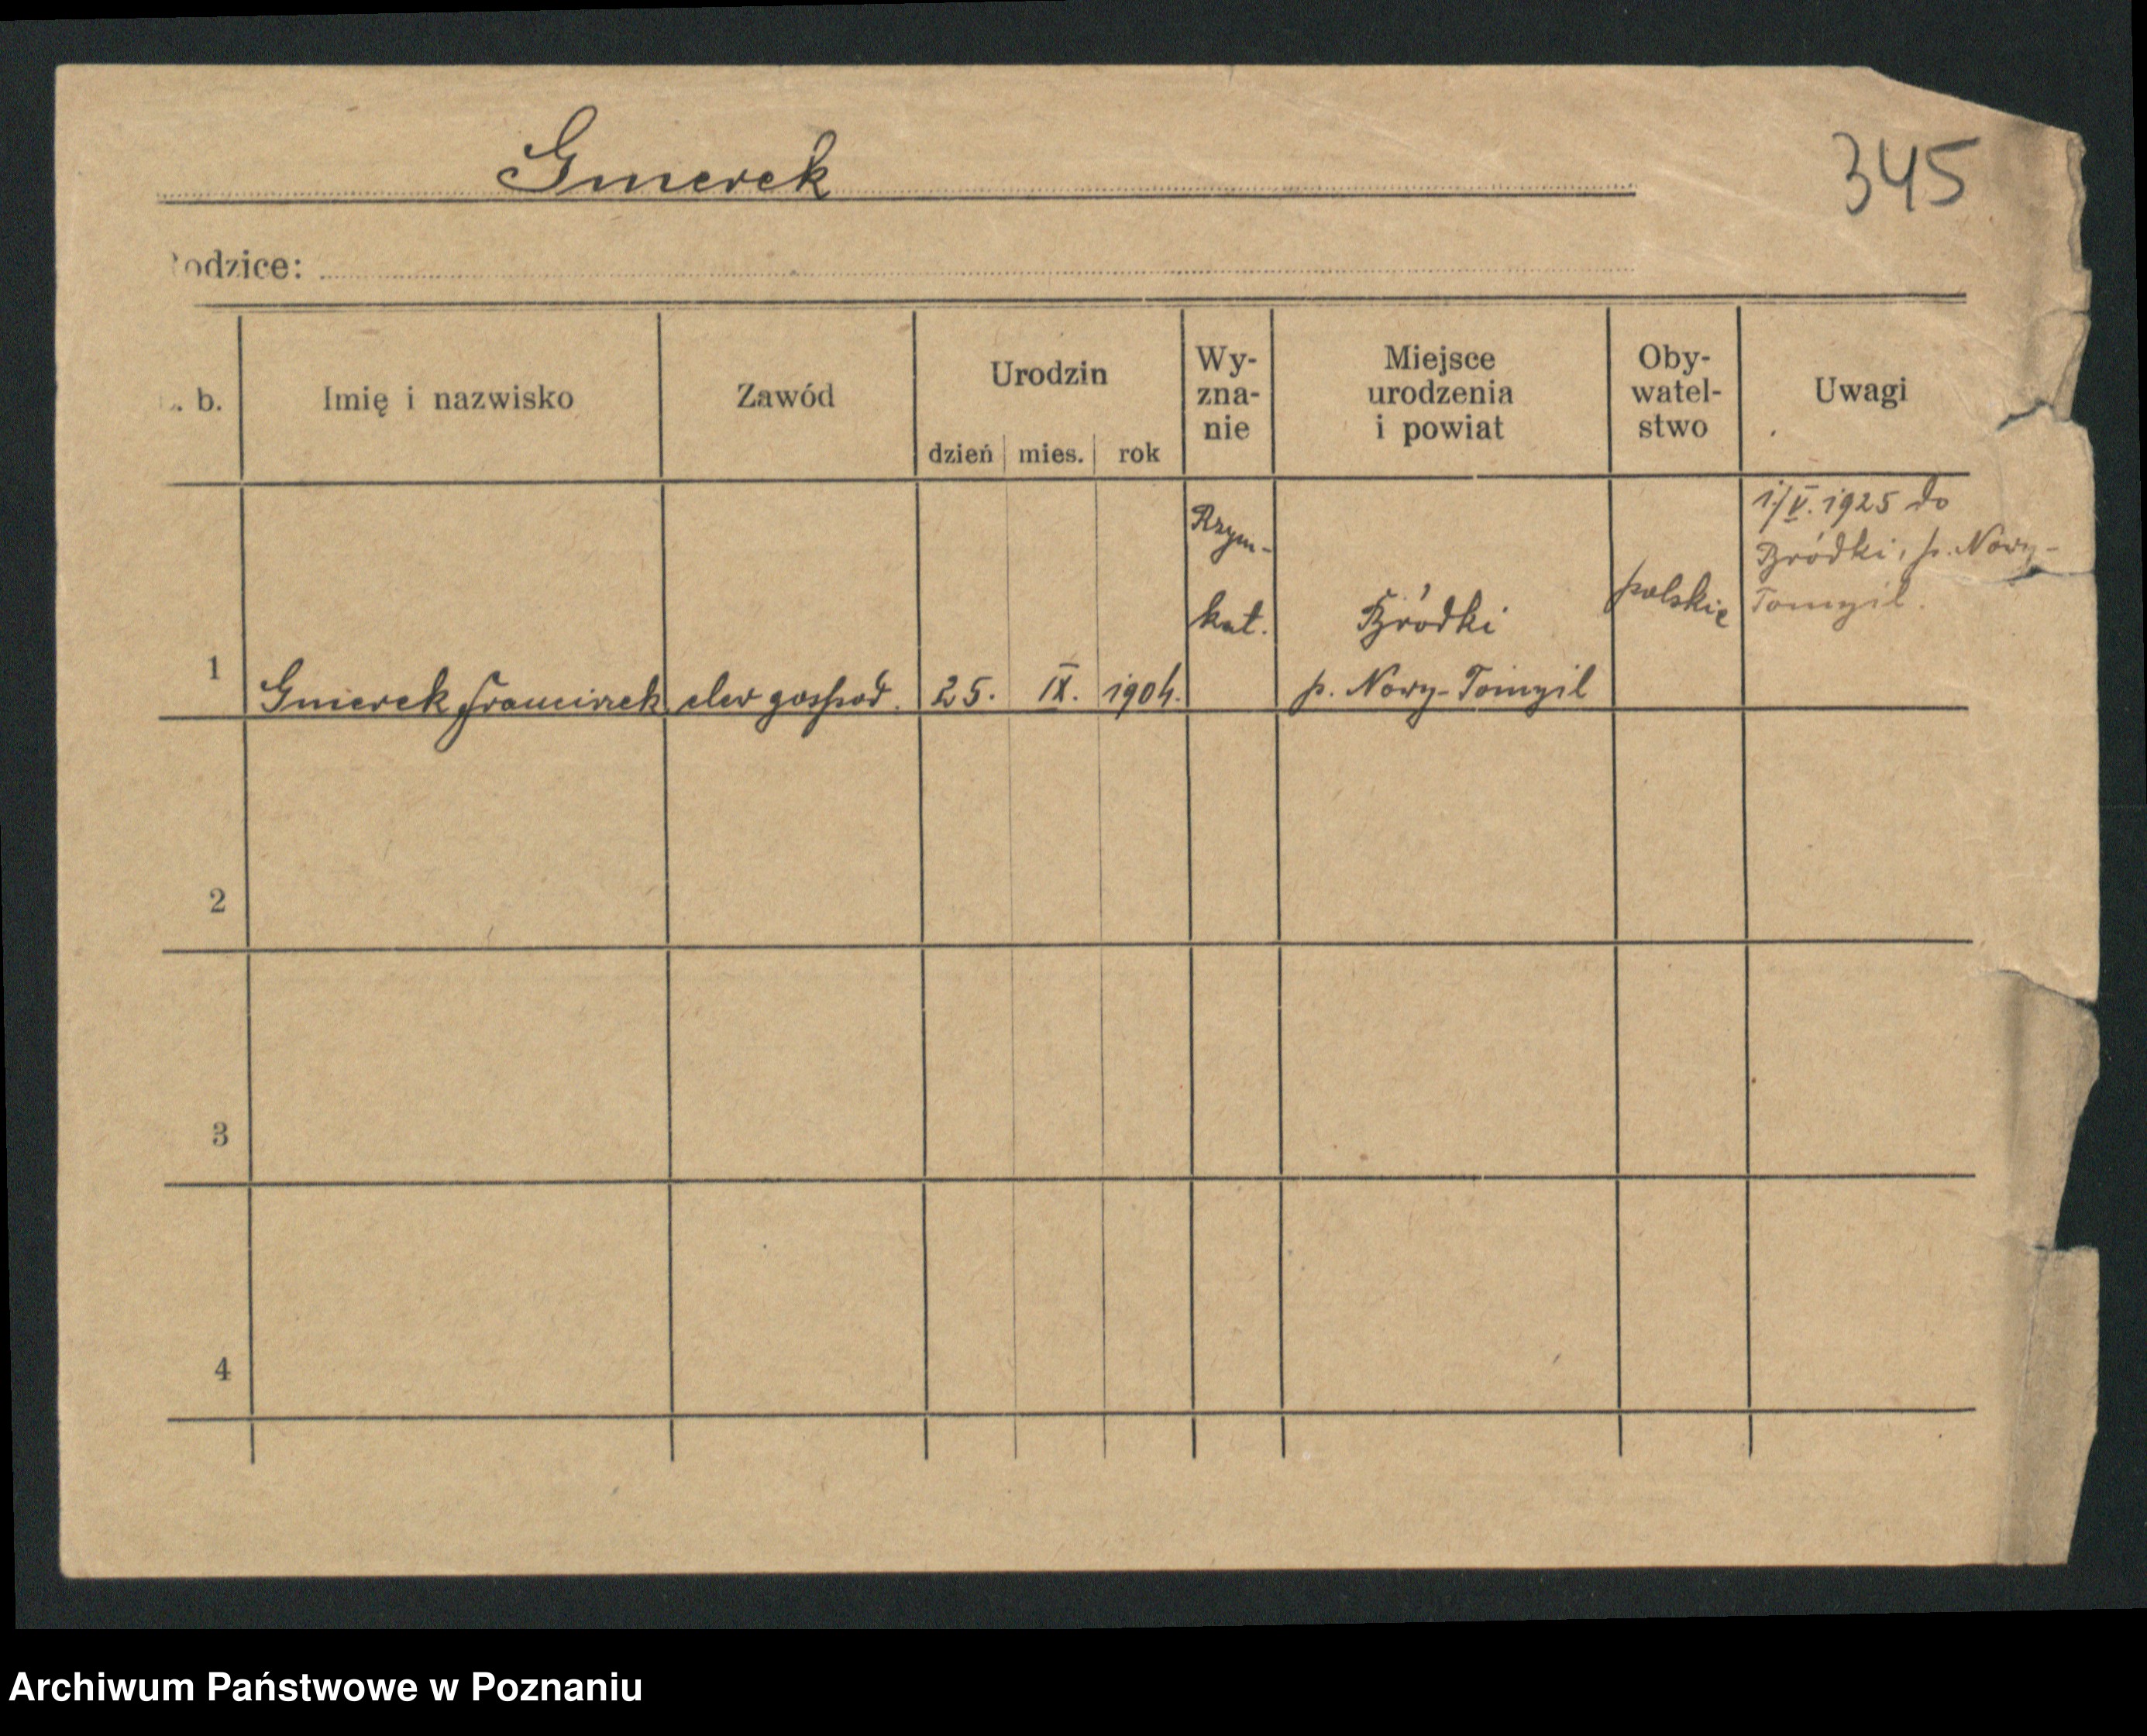 Gmerek
345
odzice:
. b.
Imię i nazwisko
Zawód
Urodzin
dzień
mies.
rok
Wy-
zna-
nie
Miejsce
urodzenia
i powiat
Oby-
watel-
stwo
Uwagi
1
Gmerek Franciszek
elew gospod.
25.
IX.
1904.
Rzym-
kat.
Bródki
p. Nowy-Tomyśl
polskie
1/V. 1925 do
Bródki, p. Nowy-
Tomyśl.
2
3
4
Archiwum Państwowe w Poznaniu